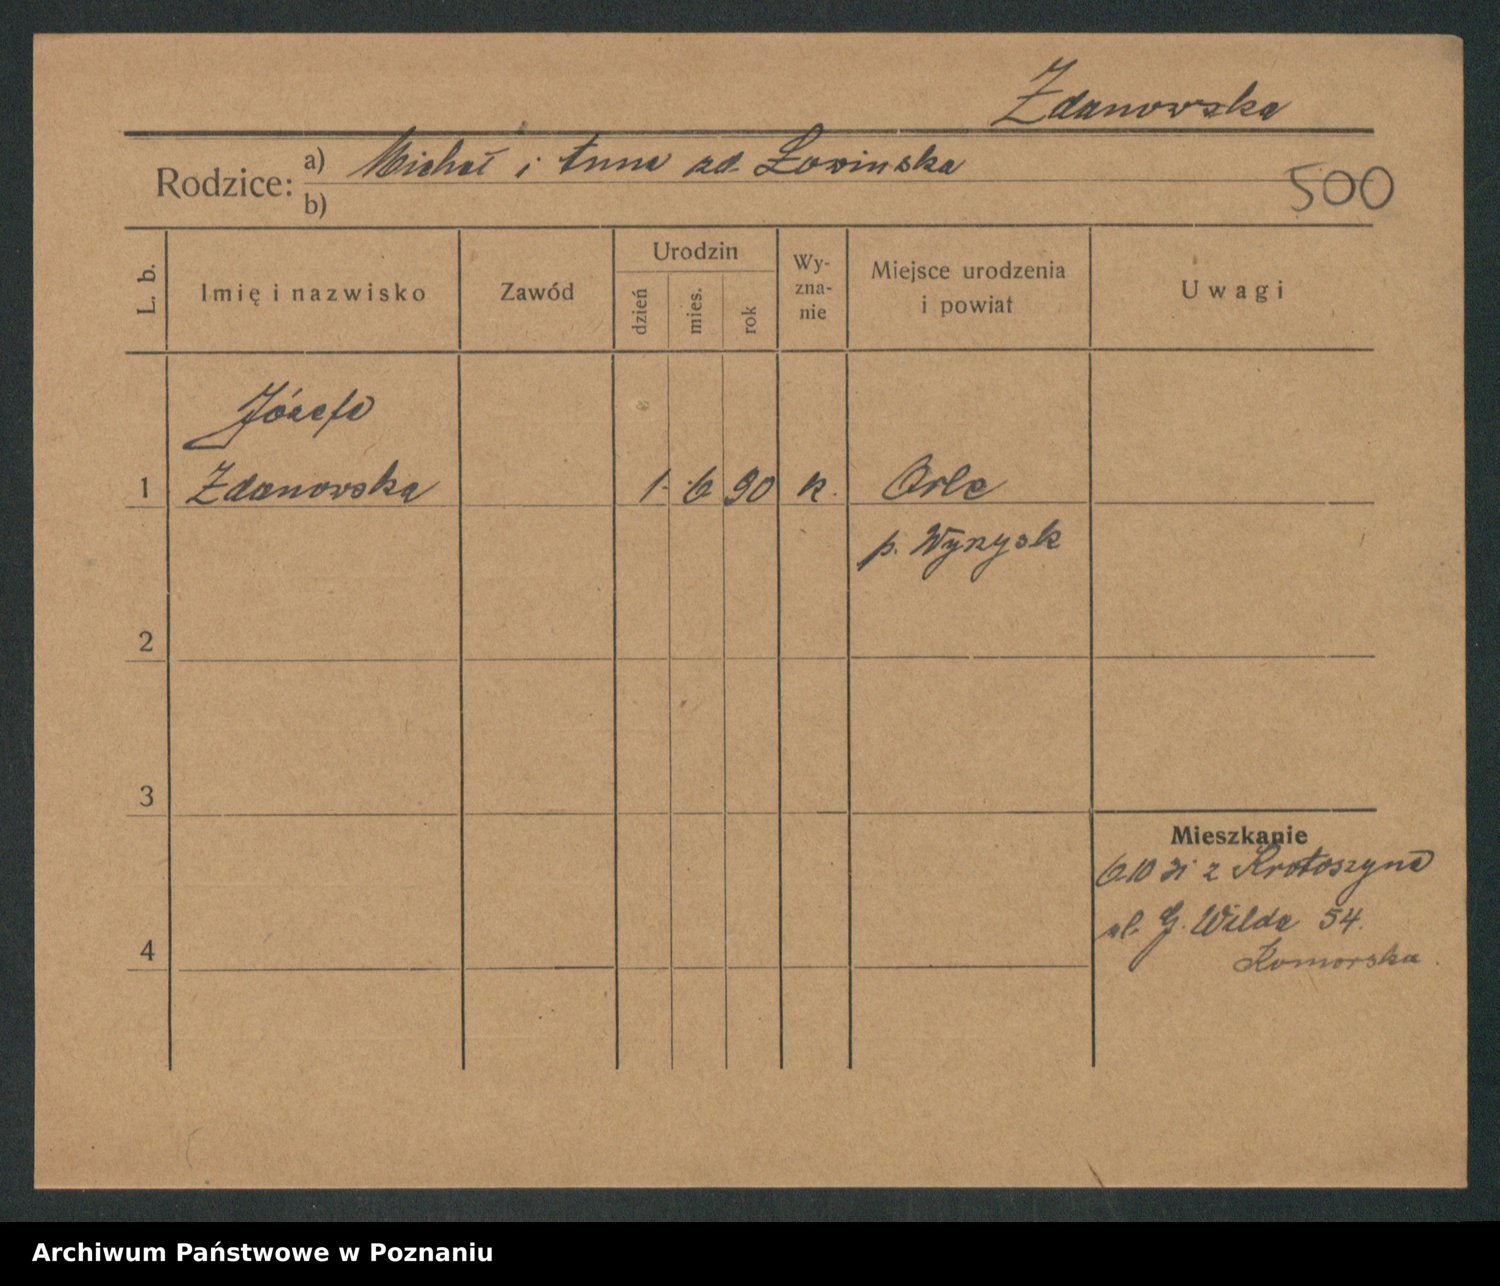 Zdanowska
Rodzice: a) Michał i Anna zd. Łosinska
500
b)
L. b.
Imię i nazwisko
Zawód
Urodzin
dzień
mies.
rok
Wy-
zna-
nie
Miejsce urodzenia
i powiat
Uwagi
Józefa
1 Zdanowska 1. 6 90 k. Orle
p. Wyrzysk
2
3
Mieszkanie
6.10 31 z Krotoszyna
ul. G. Wilda 54.
4
Komorska.
Archiwum Państwowe w Poznaniu